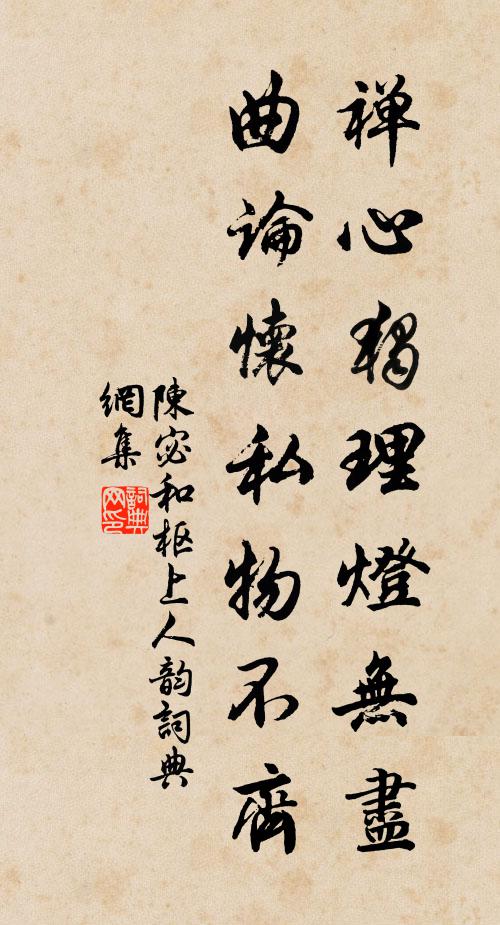 禅心獨理燈無盡
曲論懷私物不齊
陳宓和枢上人韵詞典
網集
詞典
网印